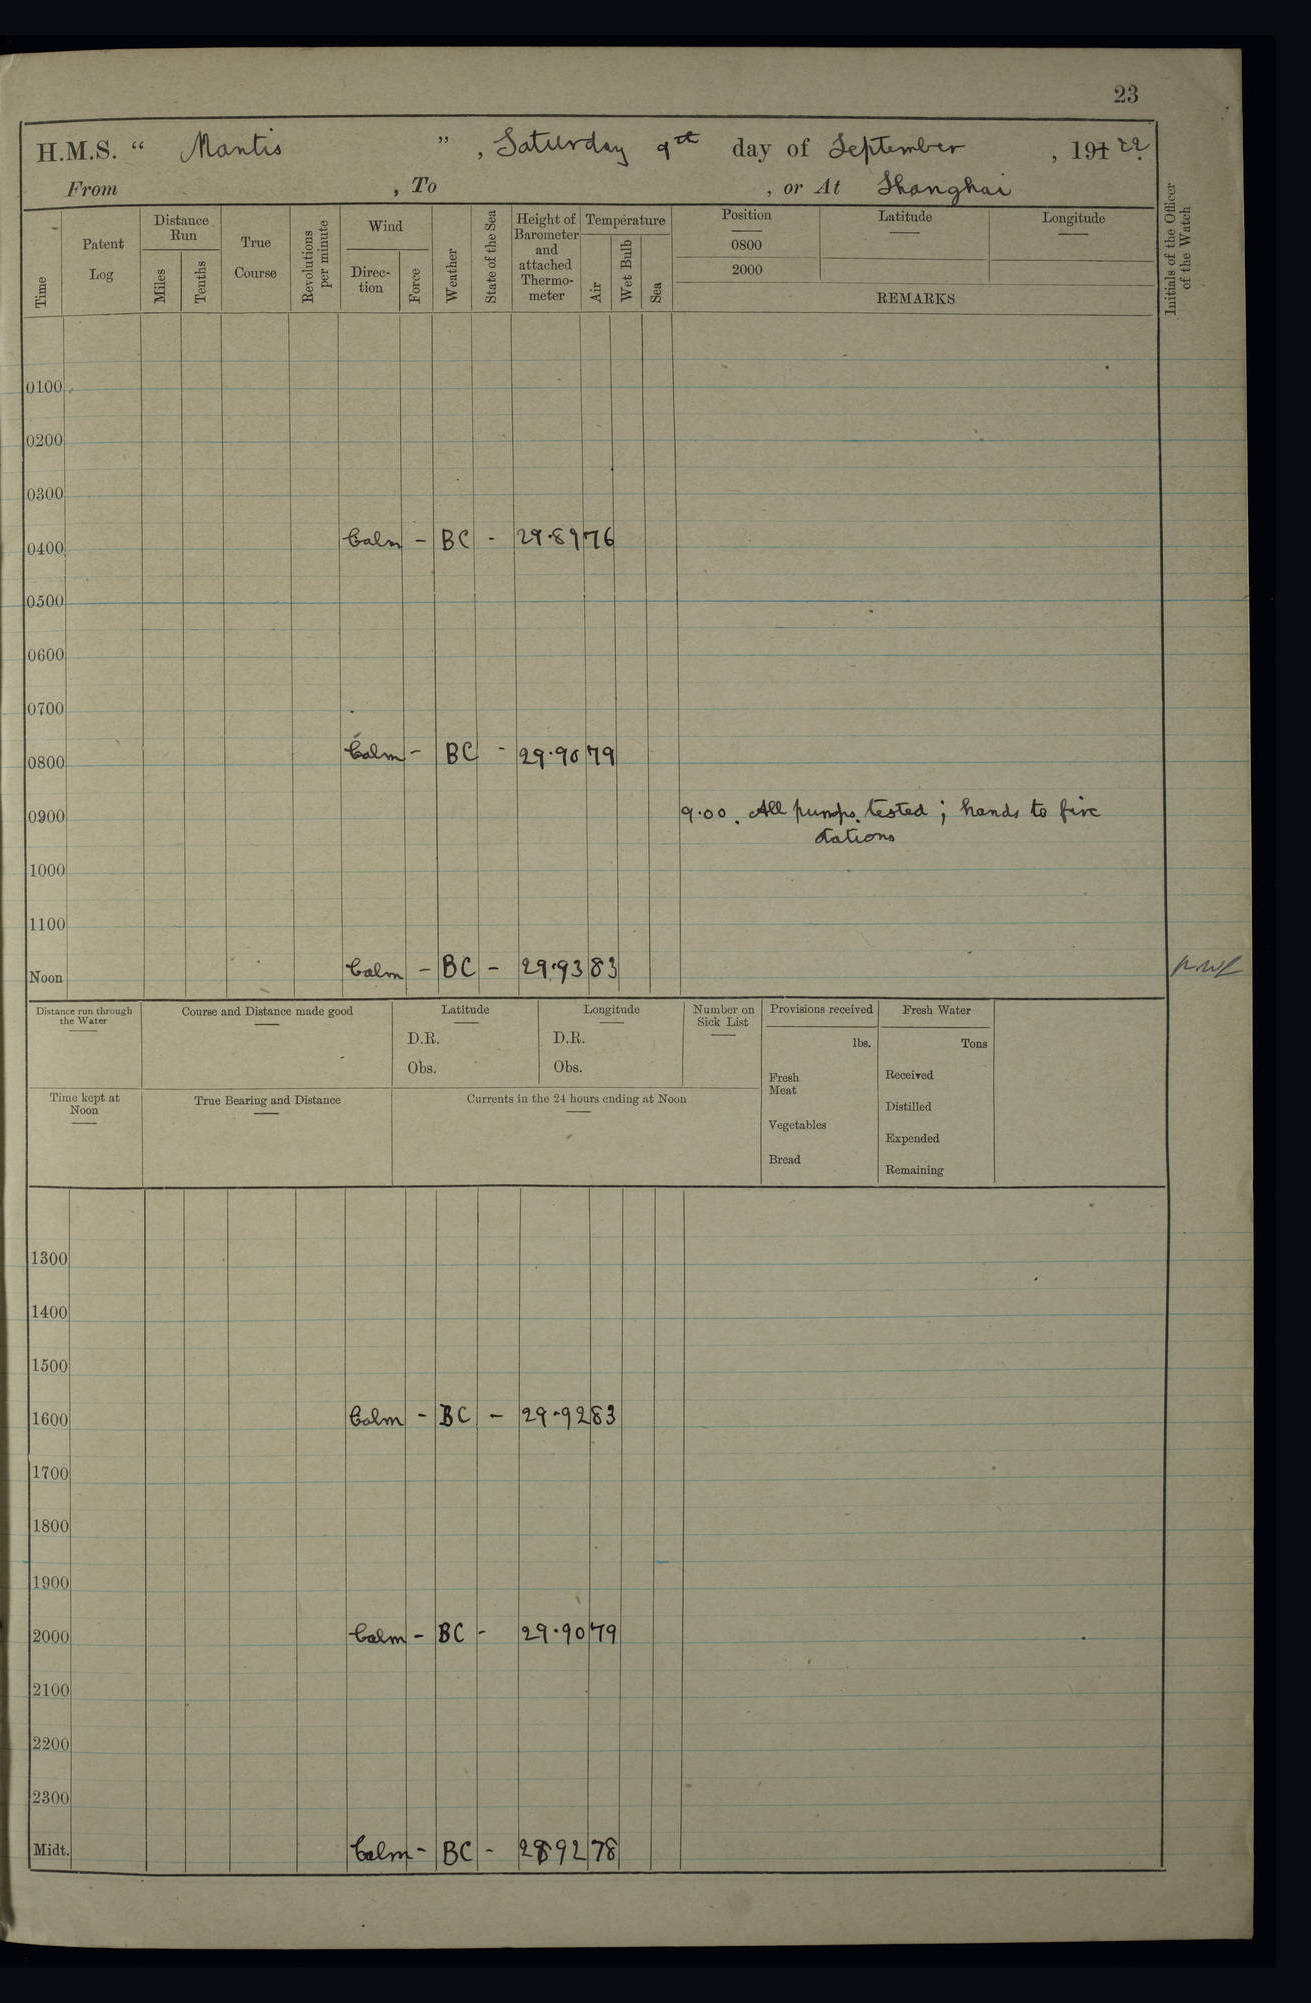 23
H.M.S. “ Mantis ” , Saturday 9th day of September , 191 22
From , To , or At Shanghai
Time
Patent Log
Distance Run
Miles
Tenths
True Course
Revolutions per minute
Wind
Direc- tion
Force
Weather
State of the Sea
Height of Barometer and attached Thermo- meter
Temperature
Air
Wet Bulb
Sea
Position
0800
2000
Latitude
Longitude
REMARKS
Initials of the Officer of the Watch
0100
0200
0300
0400 Calm - BC - 29.89 76
0500
0600
0700
0800 Calm - BC - 29.90 79
0900 9.00. All pumps tested ; hands to fire
stations
1000
1100
Noon Calm - BC - 29.93 83
Distance run through the Water
Course and Distance made good
Latitude
D.R.
Obs.
Longitude
D.R.
Obs.
Number on Sick List
Provisions received
lbs.
Fresh Meat
Vegetables
Bread
Fresh Water
Tons
Received
Distilled
Expended
Remaining
Time kept at Noon
True Bearing and Distance
Currents in the 24 hours ending at Noon
1300
1400
1500
1600 Calm - BC - 29.92 83
1700
1800
1900
2000 Calm - BC - 29.90 79
2100
2200
2300
Midt. Calm - BC - 29 92 78